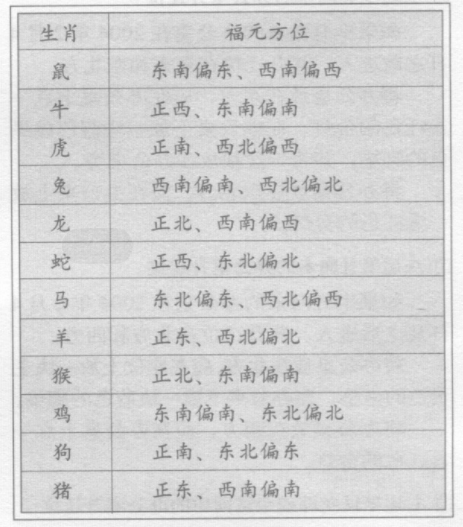 生肖 福元方位
鼠 东南偏东、西南偏西
牛 正西、东南偏南
虎 正南、西北偏西
兔 西南偏南、西北偏北
龙 正北、西南偏西
蛇 正西、东北偏北
马 东北偏东、西北偏西
羊 正东、西北偏北
猴 正北、东南偏南
鸡 东南偏南、东北偏北
狗 正南、东北偏东
猪 正东、西南偏南